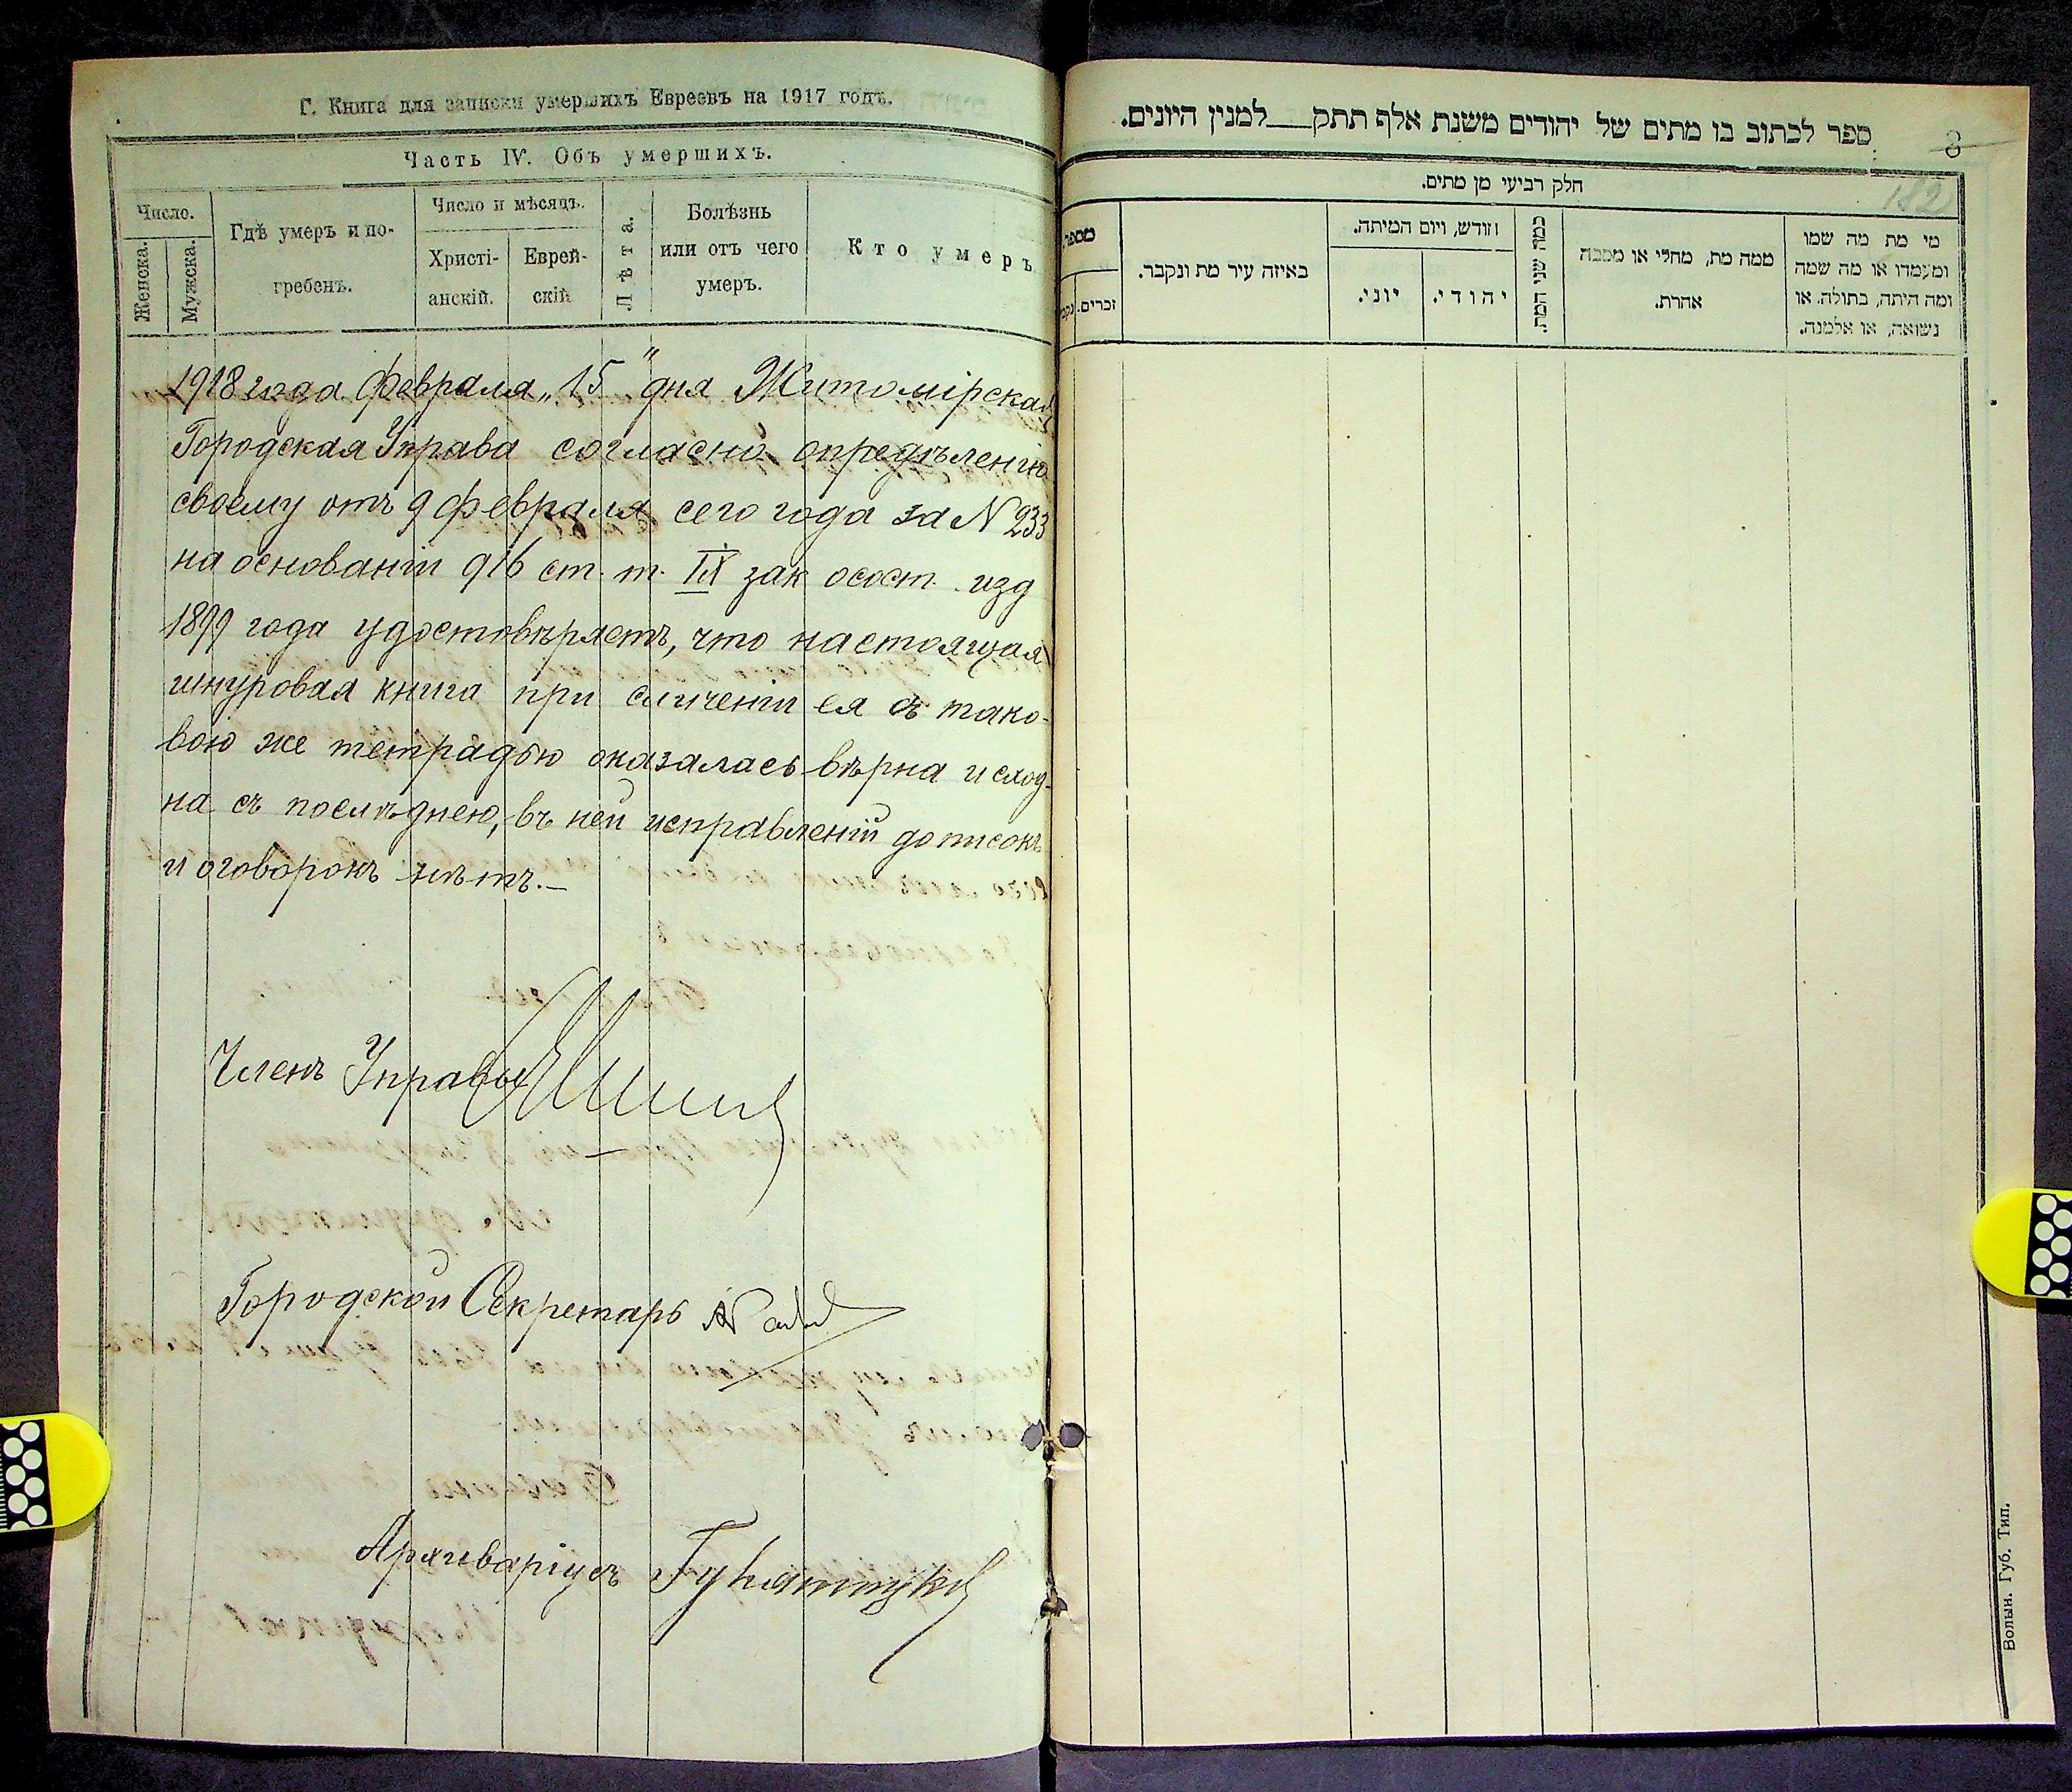 Г. Книга для записки умершихъ Евреевъ на 1917 годъ.
Часть IV. Объ умершихъ.
Число.
Женска.
Мужска.
Гдѣ умеръ и по-
гребенъ.
Число и мѣсяцъ.
Христі-
анскій.
Еврей-
скій
Лѣта.
Болѣзнь
или отъ чего
умеръ.
Кто умеръ
1918 года февраля „15" дня Житомірская
Городская Управа согласно опредѣленію
своему отъ 9 февраля сего года за N 233
на основаніи 916 ст. т. IX зак о сост. изд
1899 года удостовѣряетъ, что настоящая
шнуровая книга при сличеніи ея съ тако-
вою же тетрадью оказалась вѣрна и сход-
на съ послѣднею, въ ней исправленій дописокъ
и оговорокъ нѣтъ.—
Членъ Управы
Городской Секретарь
Архиваріусъ
ספר לכתוב בו מתים של יהודים משנת אלף תתק___למנין היונים.
8
182
חלק רביעי מן מתים.
מי מת מה שמו
ומעמדו או מה שמה
ומה היתה, בתולה. או
נשואה, או אלמנה.
ממה מת, מחלי או מסבה
אחרת.
כמה שני המת.
חודש, ויום המיתה.
יהודי.
יוני.
באיזה עיר מת ונקבר.
מספר
זכרים.
נקב
Волын. Губ. Тип.